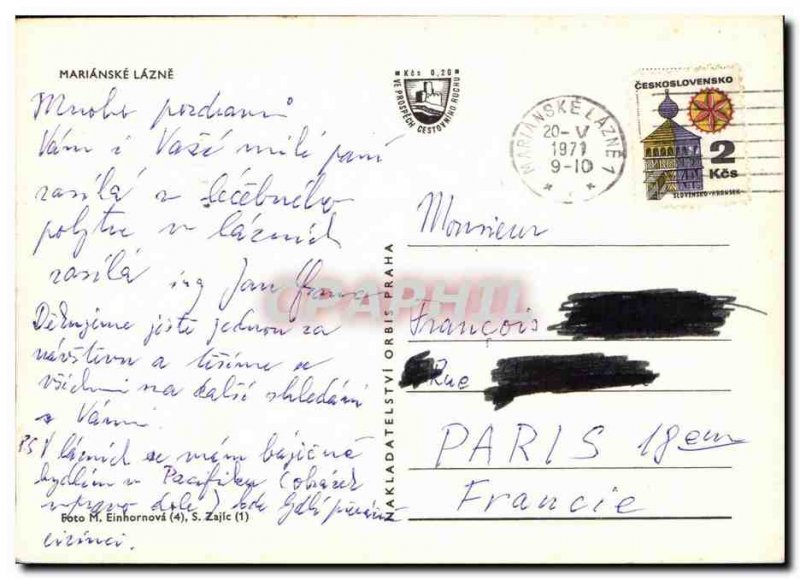 MARIÁNSKÉ LÁZNĚ
Mnoho pozdravů
Vám i Vaší milé paní
zasílá z léčebného
pobytu v lázních
zasílá ing Jan
Děkujeme ještě jednou za
návštěvu a těšíme se
všichni na další shledání
s Vámi.
PS V lázních se mám báječně
bydlím v Pacifiku (obrázek
vpravo dole) kde bydlí
cizinci.
Foto M. Einhornová (4), S. Zajíc (1)
Kčs 0,20
VE PROSPĚCH CESTOVNÍHO RUCHU
NAKLADATELSTVÍ ORBIS PRAHA
MARIÁNSKÉ LÁZNĚ 1
20-V
1971
9-10
ČESKOSLOVENSKO
2
Kčs
SLOVENSKO-HRONSEK
Monsieur
François
Rue
PARIS 18em
Francie
CPAPHIL.com